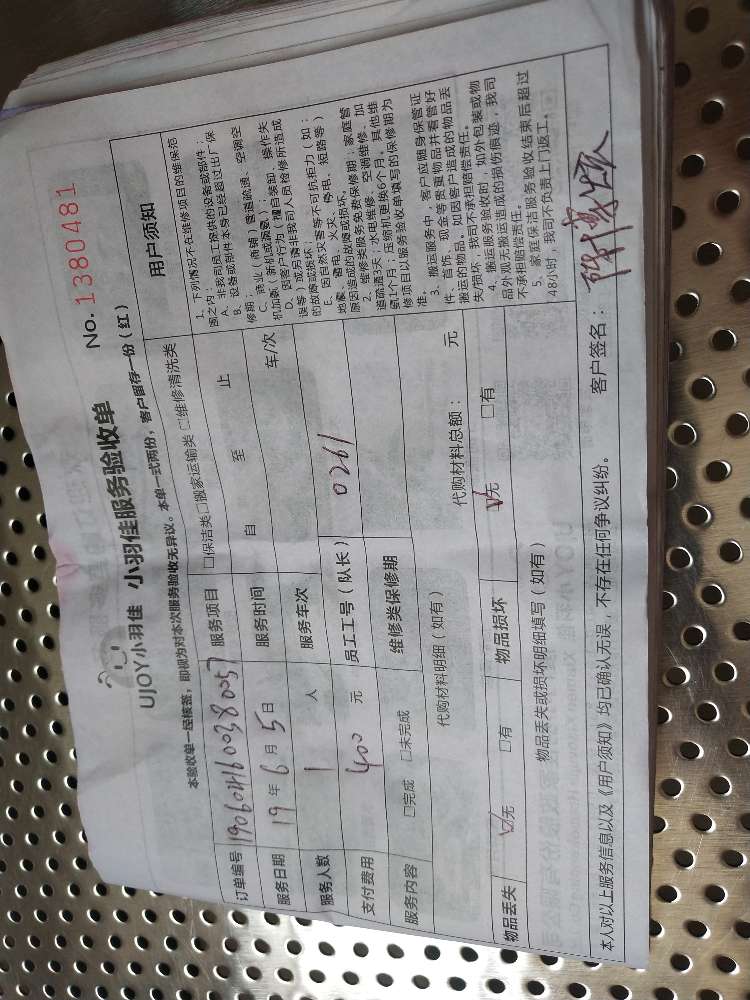 UJOY小羽佳 小羽佳服务验收单 No.1380481
本验收单一经核签，即视为对本次服务验收无异议。本单一式两份，客户留存一份（红）
订单编号 190604160038057
服务项目 □保洁类□搬家运输类 □维修清洗类
服务日期 19年6月5日
服务时间 自 至 止
服务人数 1 人
服务车次 车/次
支付费用 400 元
员工工号（队长） 0261
服务内容 □完成 □未完成
维修类保修期
代购材料明细（如有）
代购材料总额： 元
物品丢失 ☑无 □有
物品损坏 ☑无 □有
物品丢失或损坏明细填写（如有）
用户须知
1、下列情况不在维修项目的维保范
围之内：
A、非我司员工提供的设备或部件；
B、设备或部件本身已经超过出厂保
修期；
C、商业/商铺（管道疏通、空调空
机加氨（新机或漏氨）；
D、因客户行为（擅自装卸、操作失
误等）或另请非我司人员检修所造成
的故障或损坏；
E、因自然灾害等不可抗拒力（如：
地震、雷电、火灾、停电、短路等）
原因造成的故障或损坏。
2、维修类服务免费保修期：家庭管
道疏通3天；水电维修、空调维修、加
氨1个月；压缩机更换6个月。其他维
修项目以服务验收单填写的保修期为
准。
3、搬运服务中，客户应随身保管证
件、首饰、现金等贵重物品并看管好
搬运的物品。如因客户造成的物品丢
失/损坏，我司不承担赔偿责任。
4、搬运服务验收时，如外包装或物
品外观无搬运造成的损伤痕迹，我司
不承担赔偿责任。
5、家庭保洁服务验收结束后超过
48小时，我司不负责上门返工。
本人对以上服务信息以及《用户须知》均已确认无误，不存在任何争议纠纷。 客户签名：